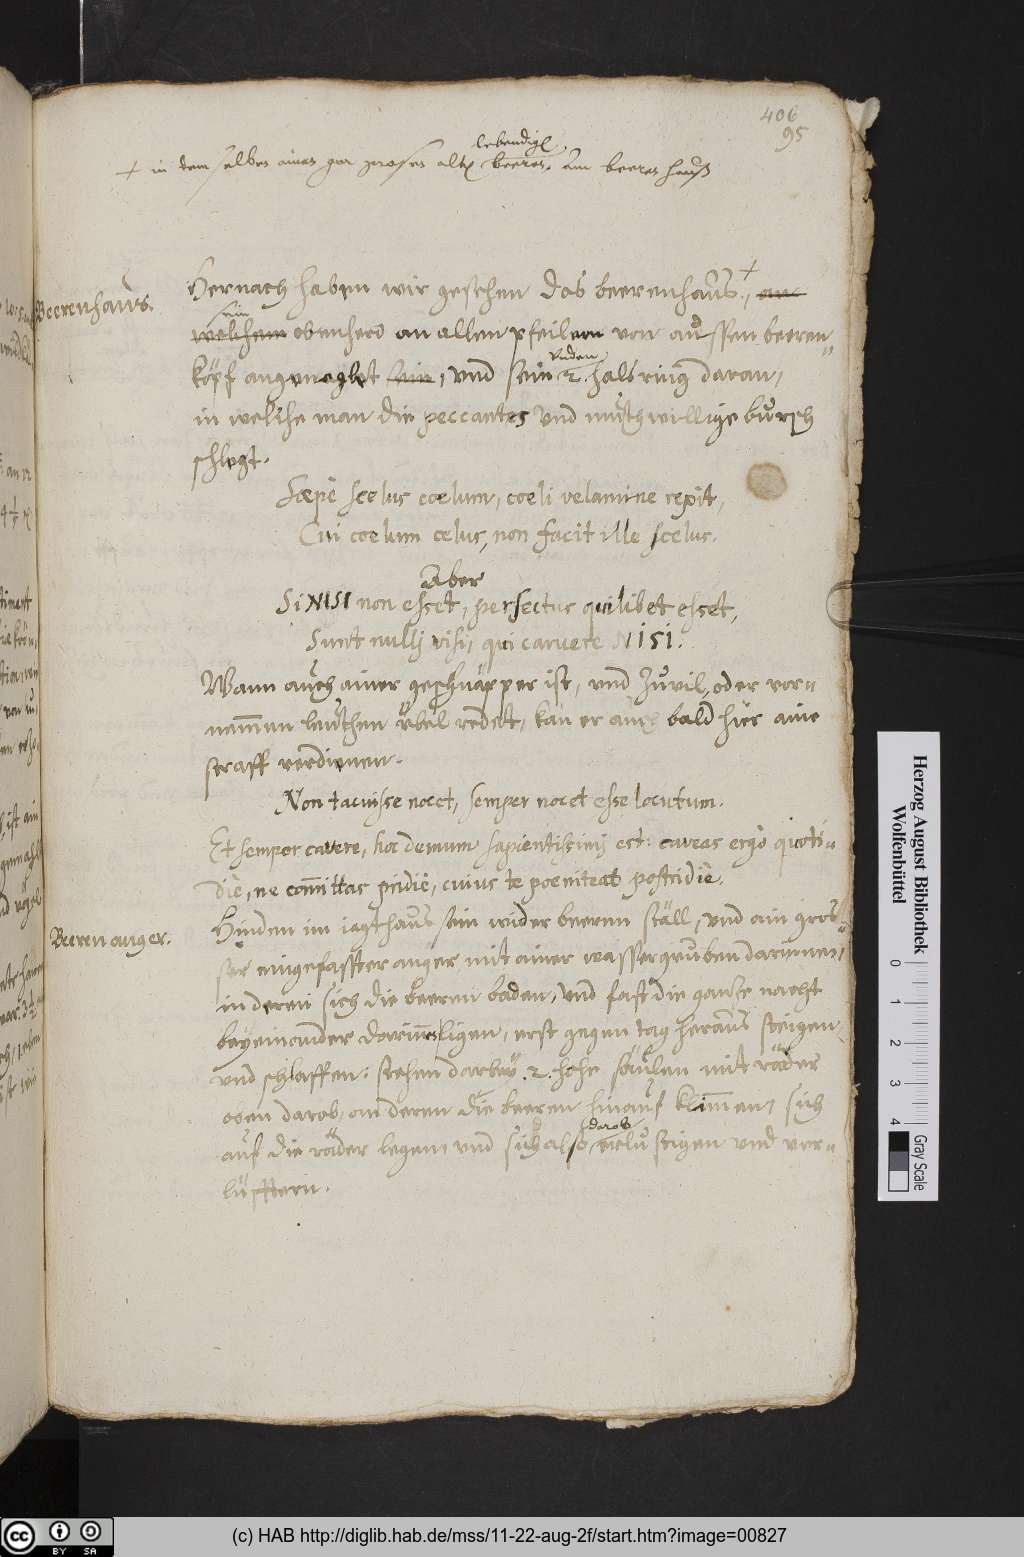 406
95
lebendig
+ in dem selben aines gar groses alts beeres. Am beeren hauß
Beerenhaus.
Hernach haben wir gesehen das beerenhaus, + an
sein
welchem obenherd an allen pfeilern von aussen beeren
köpf angenaglet sein, und sein 2. halsring daran,
unden
in welche man die peccantes und muthwillige bursch
schlegt.
Sæpè scelus coelum, coeli velamine texit,
Cui coelum celus, non facit ille scelus.
Aber
Si NISI non esset, perfectus quilibet esset,
Sunt nulli visi, qui caruere NISI.
Wann auch ainer geschnäpper ist, und zuvil, oder vor-
nemmen leuthen übel redet, kan er auch bald hier aine
straff verdienen.
Non tacuisse nocet, semper nocet esse locutum.
Et semper cavere, hoc demum sapientissimi est: caveas ergò quoti-
die, ne committas pridiè, cuius te poeniteat postridie.
Beeren anger.
Hinden im jagthaus sein wider beeren ställ, und ain gros-
ser eingefasster anger, mit ainer wassergruben darinnen,
in deren sich die beeren baden, und fast die gantze nacht
beyeinander darinnen ligen, erst gegen tag heraus steigen,
und schlaffen: stehen darbey 2. hohe säulen mit räder
oben darob, an deren die beeren hinauf klimmen, sich
auf die räder legen, und sich also
darob
steigen und ver-
lüfftern.
Herzog August Bibliothek
Wolfenbüttel
0 1 2 3 4
Gray Scale
cc BY SA
(c) HAB http://diglib.hab.de/mss/11-22-aug-2f/start.htm?image=00827